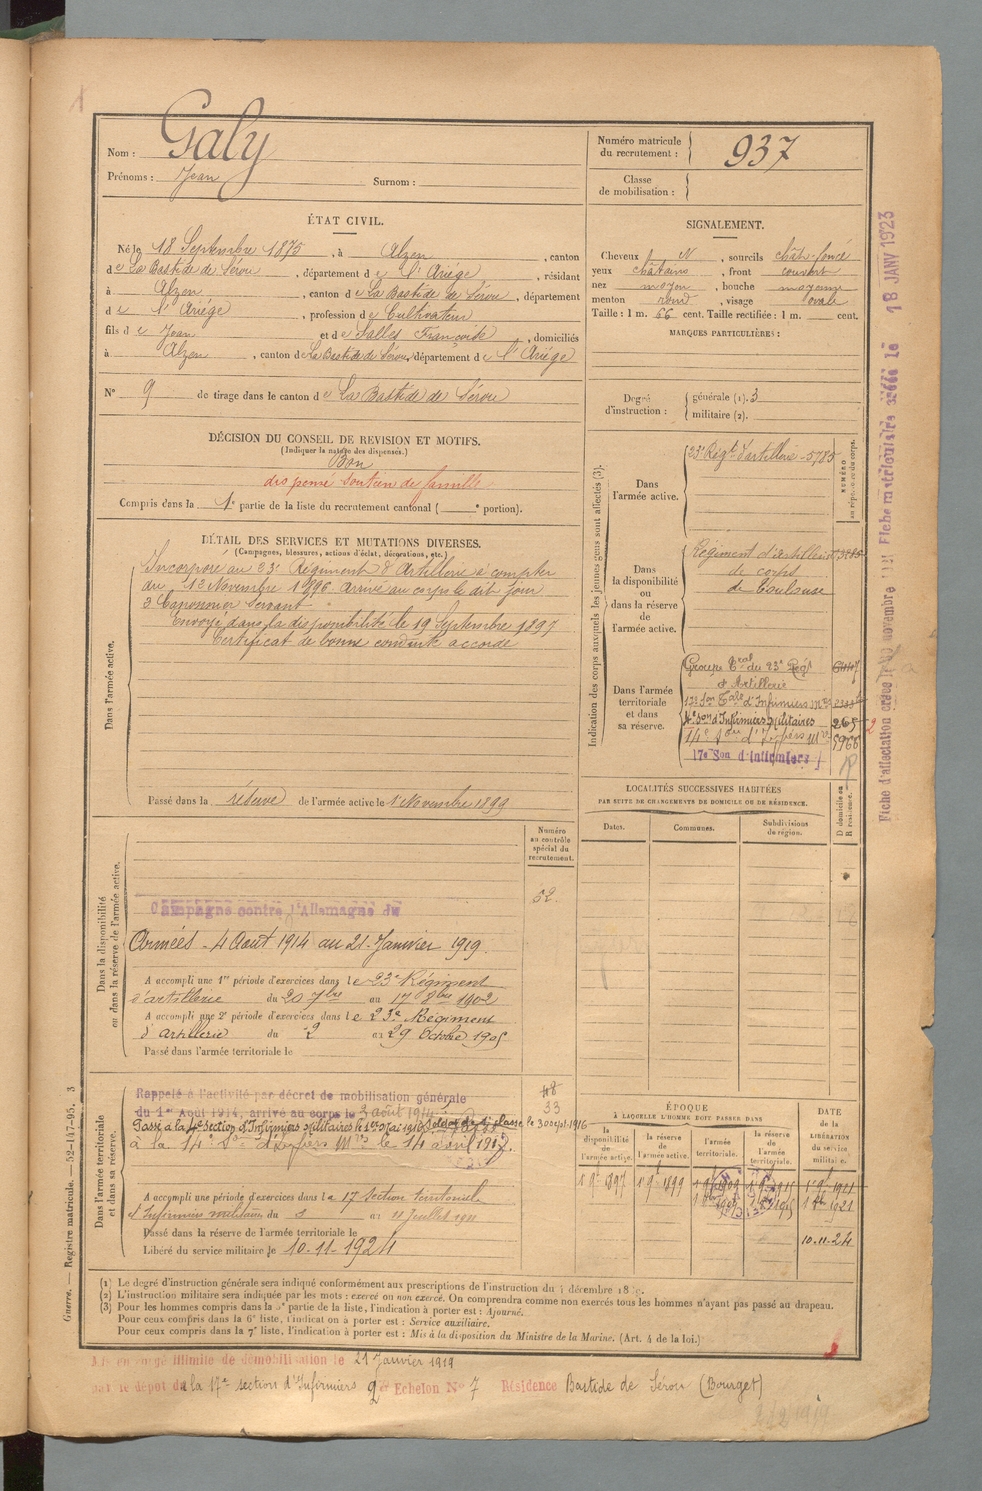 Nom : Galy
Prénoms : Jean Surnom :
Numéro matricule du recrutement : 937
Classe de mobilisation :
ÉTAT CIVIL.
Né le 18 Septembre 1875, à Alzen, canton
de La Bastide de Sérou, département de l'Ariége, résidant
à Alzen, canton de La Bastide de Sérou, département
de l'Ariége, profession de Cultivateur
fils de Jean et de Salles Françoise, domiciliés
à Alzen, canton de La Bastide de Sérou, département de l'Ariége
N° 9 de tirage dans le canton de La Bastide de Sérou
SIGNALEMENT.
Cheveux N, sourcils chât. foncé
yeux châtains, front couvert
nez moyen, bouche moyenne
menton rond, visage ovale
Taille : 1 m. 66 cent. Taille rectifiée : 1 m. cent.
MARQUES PARTICULIÈRES :
Degré d'instruction : générale (1). 3
militaire (2).
DÉCISION DU CONSEIL DE REVISION ET MOTIFS.
(Indiquer la nature des dispenses.)
Bon
dispensé soutien de famille
Compris dans la 1e partie de la liste du recrutement cantonal ( e portion).
DÉTAIL DES SERVICES ET MUTATIONS DIVERSES.
(Campagnes, blessures, actions d'éclat, décorations, etc.)
Dans l'armée active.
Incorporé au 23e Régiment d'Artillerie à compter
du 12 Novembre 1896 Arrivé au corps le dit jour
2e Canonnier Servant
Envoyé dans la disponibilité le 19 Septembre 1897
Certificat de bonne conduite accordé
Passé dans la réserve de l'armée active le 1 Novembre 1899
Indication des corps auxquels les jeunes gens sont affectés (3).
NUMÉRO au répertoire du corps.
Dans l'armée active.
23e Régt d'artillerie - 5785
Dans la disponibilité ou dans la réserve de l'armée active.
Régiment d'artillerie
de corps
de Toulouse
Dans l'armée territoriale et dans sa réserve.
Groupe Tal du 23e Régt
d'Artillerie
17e Son Tale d'Infirmiers Mres
4e Son d'Infirmiers Militaires 265
14e Son d'Infiers Mres 5966
17e Son d'Infirmiers
LOCALITÉS SUCCESSIVES HABITÉES
PAR SUITE DE CHANGEMENTS DE DOMICILE OU DE RÉSIDENCE.
Dates. Communes. Subdivisions de région. D domicile ou R résidence.
Dans la disponibilité ou dans la réserve de l'armée active.
Numéro au contrôle spécial du recrutement.
52.
Campagne contre l'Allemagne du
Armées - 4 Août 1914 au 21 Janvier 1919.
A accompli une 1re période d'exercices dans le 23e Régiment
d'artillerie du 20 7bre au 17 8bre 1902
A accompli une 2e période d'exercices dans le 23e Régiment
d'artillerie du 2 au 29 Octobre 1905
Passé dans l'armée territoriale le
Dans l'armée territoriale et dans sa réserve.
48
33
Rappelé à l'activité par décret de mobilisation générale
du 1er Août 1914, arrivé au corps le 3 août 1914
Passé à la 4e Section d'Infirmiers Militaires le 1er Mai 1916 Soldat de 1e classe le 30 sept 1916
à la 14e Son d'Infiers Mres le 14 avril 1917.
A accompli une période d'exercices dans la 17 Section territoriale
d'Infirmiers militaires du 3 au 11 Juillet 1911
Passé dans la réserve de l'armée territoriale le
Libéré du service militaire le 10-11-1924
ÉPOQUE
À LAQUELLE L'HOMME DOIT PASSER DANS
la disponibilité de l'armée active. la réserve de l'armée active. l'armée territoriale. la réserve de l'armée territoriale.
DATE de la LIBÉRATION du service militaire.
1 9e 1897 1 9e 1899
1921
10-11-24
(1) Le degré d'instruction générale sera indiqué conformément aux prescriptions de l'instruction du décembre
(2) L'instruction militaire sera indiquée par les mots : exercé ou non exercé. On comprendra comme non exercés tous les hommes n'ayant pas passé au drapeau.
(3) Pour les hommes compris dans la 5e partie de la liste, l'indication à porter est : Ajourné.
Pour ceux compris dans la 6e liste, l'indication à porter est : Service auxiliaire.
Pour ceux compris dans la 7e liste, l'indication à porter est : Mis à la disposition du Ministre de la Marine. (Art. 4 de la loi.)
Mis en congé illimité de démobilisation le 21 Janvier 1919
par le dépôt de la 17e section d'Infirmiers 9e Echelon N° 7 Résidence Bastide de Sérou (Bourget)
Guerre. — Registre matricule. — 52-147-95. 3
Fiche matriculaire créée le 18 JANV 1923